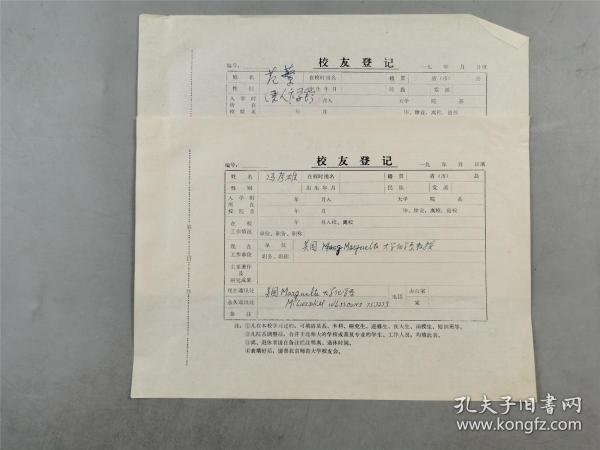 校友登记
编号： 一九 年 月 日填
姓名 范 在校时用名 籍贯 省（市） 县
性别 出生年月 民族 党派
入学时 年 月入 大学 院 系
所在
校院系 年 月 毕、肄业、离校、退校
校友登记
编号： 一九 年 月 日填
姓名 冯彦雄 在校时用名 籍贯 省（市） 县
性别 出生年月 民族 党派
入学时 年 月入 大学 院 系
所在
校院系 年 月 毕、肄业、离校、退校
在校 年 月入校、离校
工作情况 单位、职务、职称
现在 单位 美国 Marquette 大学化学系教授
工作单位 职务、职称
主要著作
及
研究成果
现在通讯处 美国 Marquette 大学化学系 电话 办公室
永久通讯处 家
备注
注：①凡在本校学习过的，可填清某系、本科、研究生、进修生、夜大生、函授生、短训班等。
②凡院系调整后，合并于北师大的学校或系及专业的学生、工作人员，均填此表。
③离、退休者请在备注栏注明离、退休时间。
④表填好后，请寄北京师范大学校友会。
孔夫子旧书网
www.kongfz.com